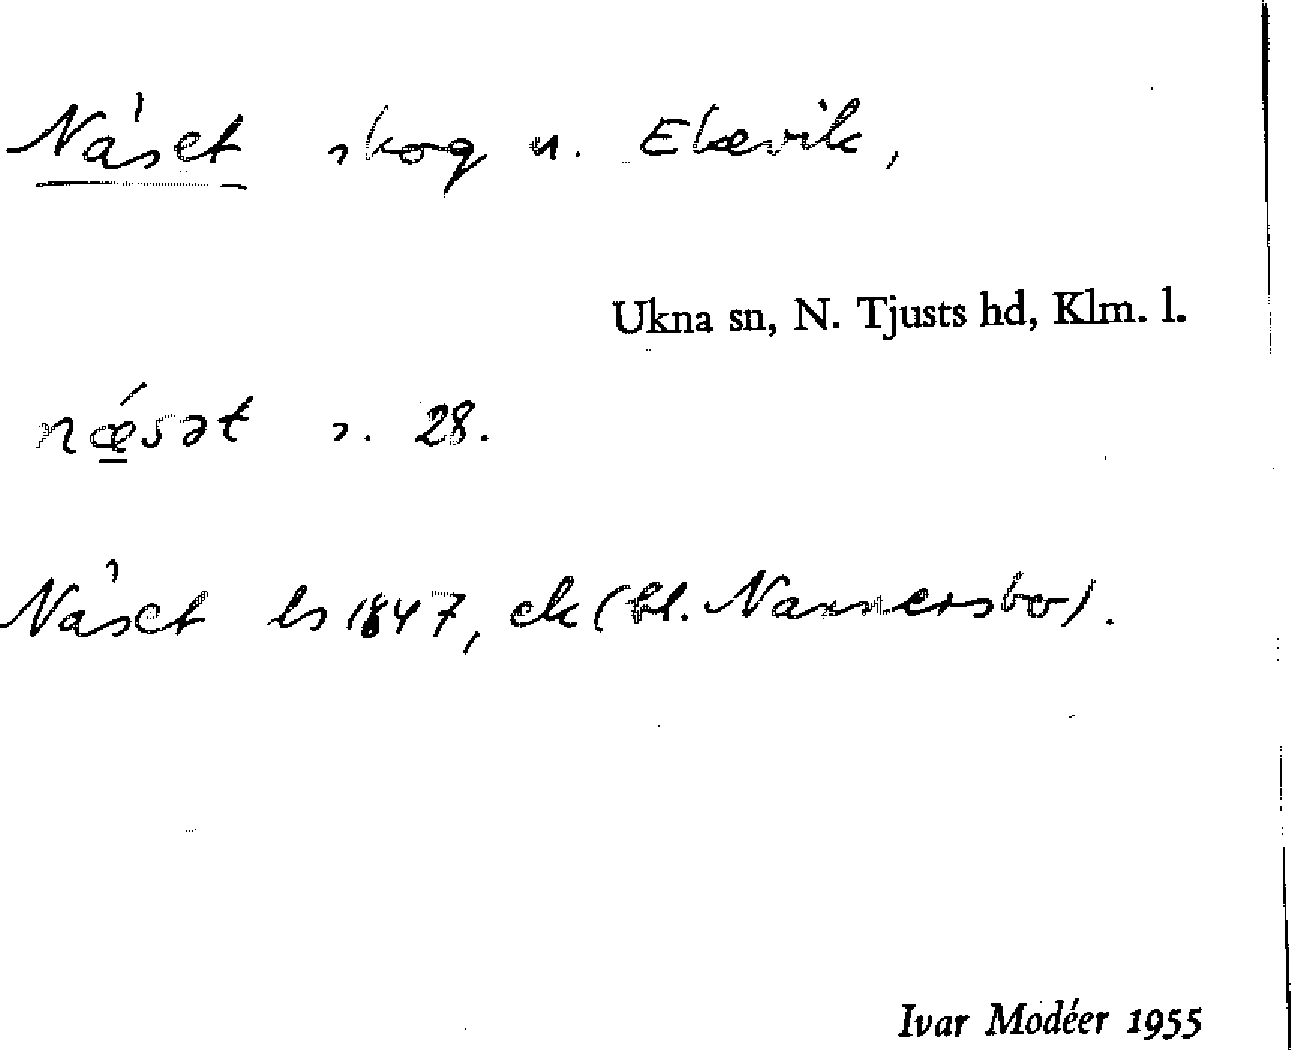 Näset skog u. Ekevik,
Ukna sn, N. Tjusts hd, Klm. l.
nǽ̲sət s. 28.
Näset ls 1847, ek (bl. Nannersbo).
Ivar Modéer 1955